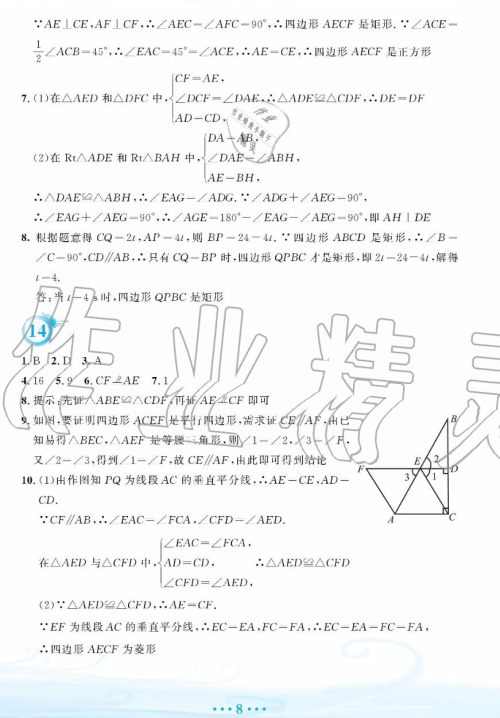 ∵AE⊥CE,AF⊥CF,∴∠AEC=∠AFC=90°,∴四边形 AECF 是矩形.∵∠ACE=
1/2∠ACB=45°,∴∠EAC=45°=∠ACE,∴AE=CE,∴四边形 AECF 是正方形
7. (1)在△AED 和△DFC 中,{CF=AE,
∠DCF=∠DAE,∴△ADE≌△CDF,∴DE=DF
AD=CD,
(2)在 Rt△ADE 和 Rt△BAH 中,{DA=AB,
∠DAE=∠ABH,
AE=BH,
∴△DAE≌△ABH,∴∠EAG=∠ADG.∵∠ADG+∠AEG=90°,
∴∠EAG+∠AEG=90°,∴∠AGE=180°-∠EAG-∠AEG=90°,即 AH⊥DE
8. 根据题意得 CQ=2t,AP=4t,则 BP=24-4t.∵四边形 ABCD 是矩形,∴∠B=
∠C=90°,CD∥AB,∴只有 CQ=BP 时,四边形 QPBC 才是矩形,即 2t=24-4t,解得
t=4.
答:当 t=4 s时,四边形 QPBC 是矩形
14
1. B 2. D 3. A
4. 16 5. 9 6. CF⊥AE 7. 1
8. 提示:先证△ABE≌△CDF,再证 AE=CF 即可
9. 如图,要证明四边形 ACEF 是平行四边形,需求证 CE∥AF,由已
知易得△BEC,△AEF 是等腰三角形,则∠1=∠2,∠3=∠F,
又∠2=∠3,得到∠1=∠F,故 CE∥AF,由此即可得到结论
B
F
E
2
D
3
1
A
C
10. (1)由作图知 PQ 为线段 AC 的垂直平分线,∴AE=CE,AD=
CD.
∵CF∥AB,∴∠EAC=∠FCA,∠CFD=∠AED.
在△AED 与△CFD 中,{∠EAC=∠FCA,
AD=CD, ∴△AED≌△CFD
∠CFD=∠AED,
(2)∵△AED≌△CFD,∴AE=CF.
∵EF 为线段 AC 的垂直平分线,∴EC=EA,FC=FA,∴EC=EA=FC=FA,
∴四边形 AECF 为菱形
8
作业精灵